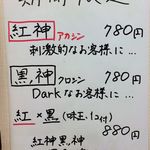 紅神 アカシン 780円
刺激的なお客様に…
黒神 クロシン 780円
Darkなお客様に…
紅×黒 (味玉1コ付)
880円
紅神黒神